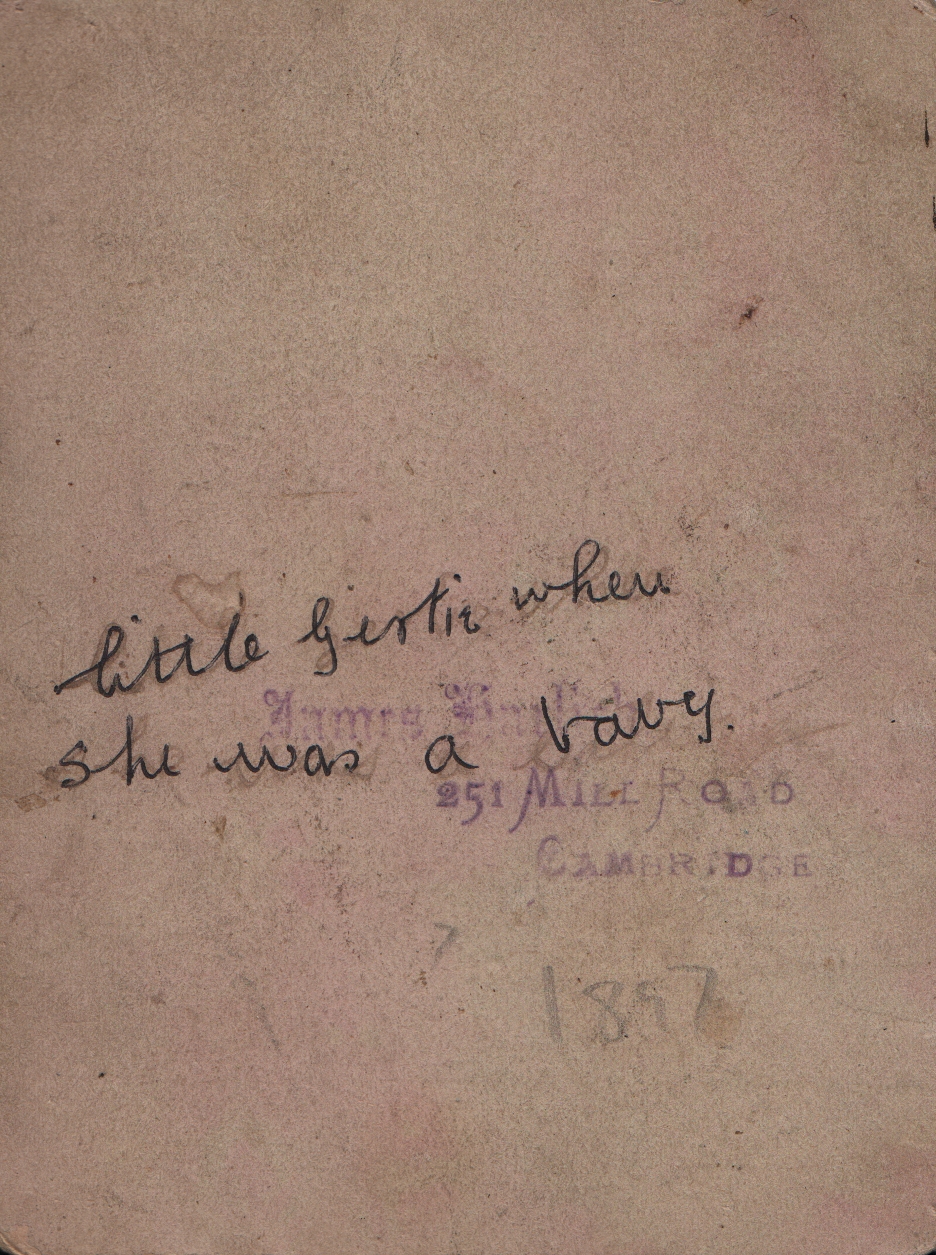 little Gertie when
she was a bavy.
James
251 MILL ROAD
CAMBRIDGE
1897